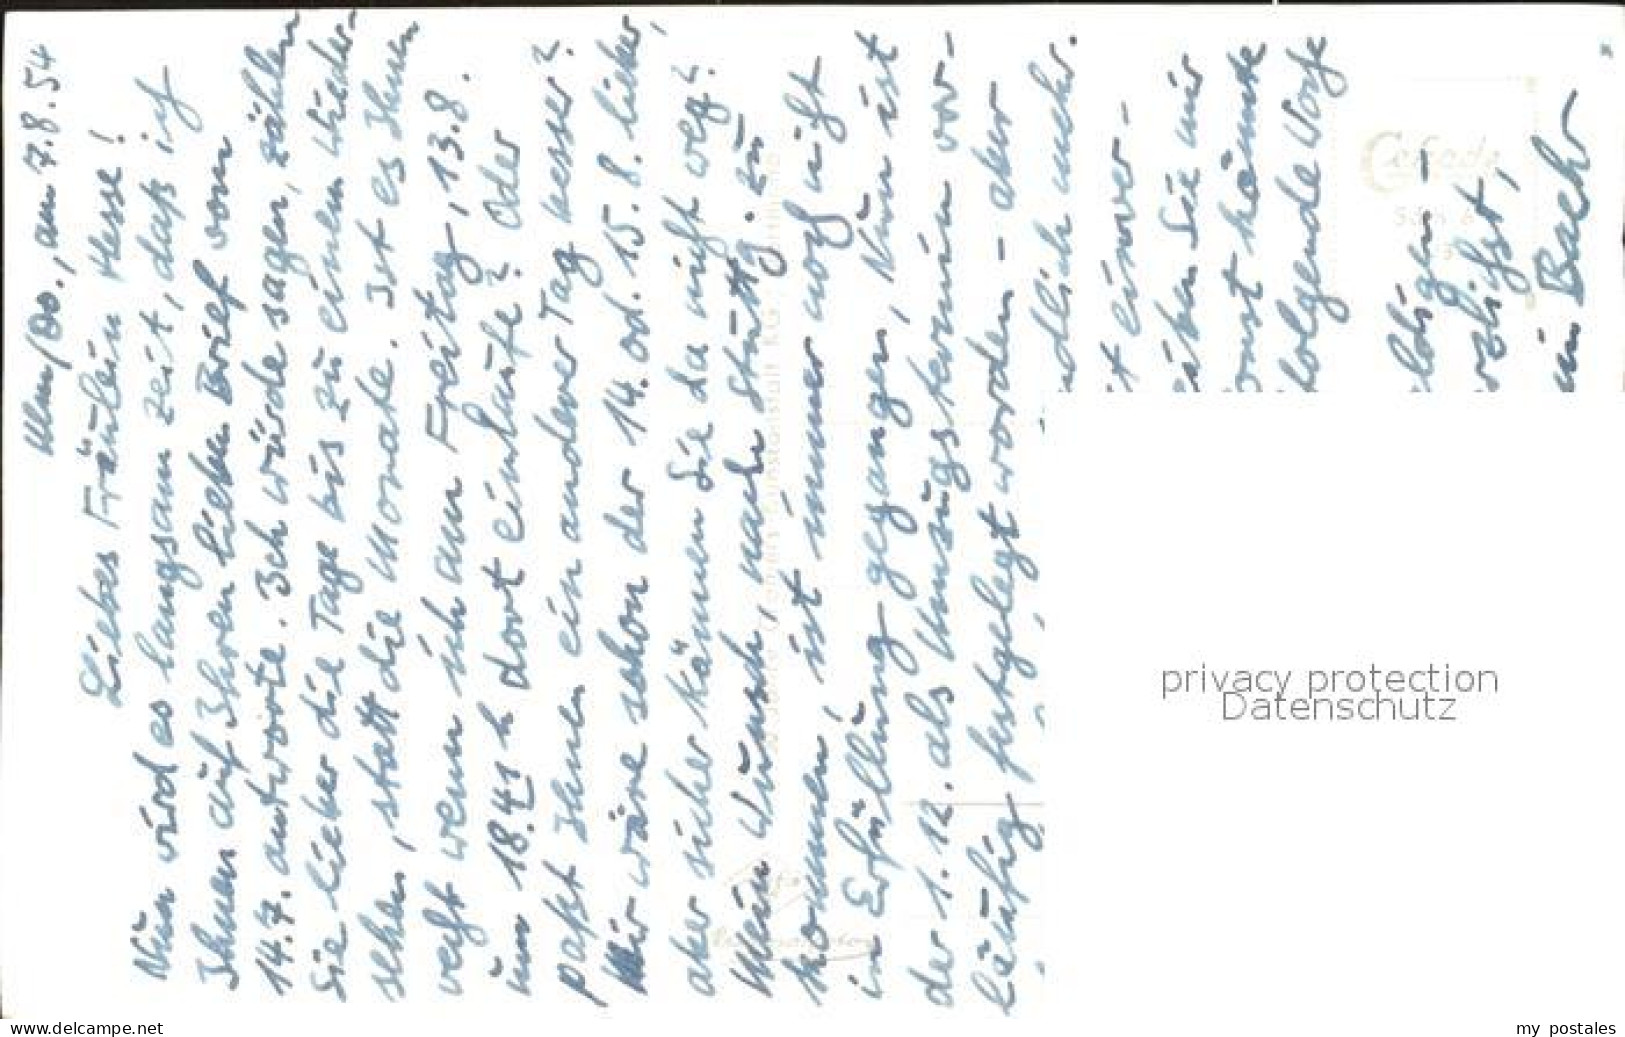 Ulm/Do., am 7.8.54
Liebes Fräulein Hesse!
Nun wird es langsam Zeit, daß ich
Ihnen auf Ihren lieben Brief vom
14.7. antworte. Ich würde sagen, zählen
Sie lieber die Tage bis zu einem Wieder-
sehen, statt die Monate. Ist es Ihnen
recht wenn ich am Freitag, 13.8.
um 18.41 h dort einlaufe? Oder
paßt Ihnen ein anderer Tag besser?
Mir wäre schon der 14. od. 15. 8. lieber,
aber sicher können Sie da nicht weg?
Mein Wunsch, nach Stuttg. zu
kommen, ist immer noch nicht
in Erfüllung gegangen, Nun ist
der 1. 12. als Umzugstermin vor-
läufig festgelegt worden - aber
dlich mehr.
t einver-
Sie mir
onst könnte
folgende Woche
loh gen -
rzlichst,
in Baehr
privacy protection
Datenschutz
www.delcampe.net
my postales